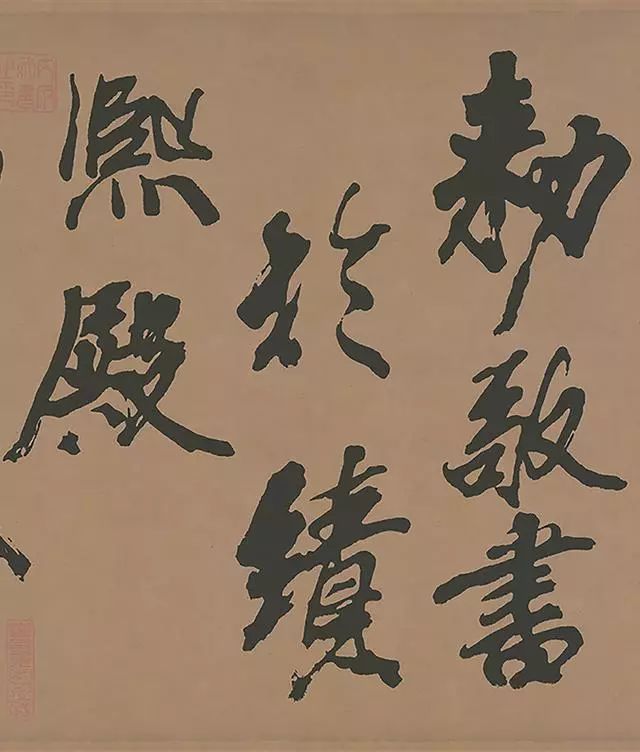 勅敬書
於績
熙殿